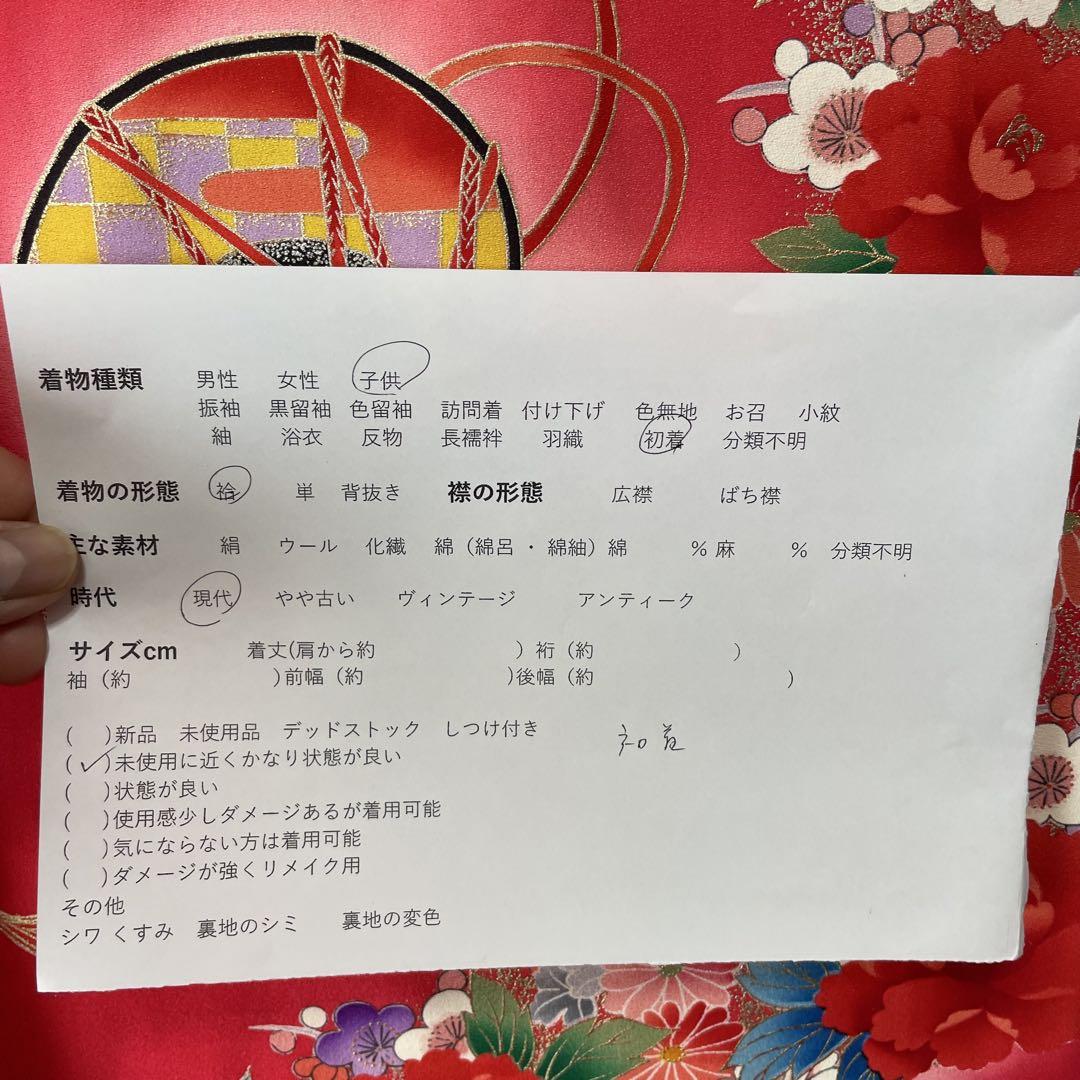 着物種類 男性 女性 子供
振袖 黒留袖 色留袖 訪問着 付け下げ 色無地 お召 小紋
紬 浴衣 反物 長襦袢 羽織 初着 分類不明
着物の形態 袷 単 背抜き 襟の形態 広襟 ばち襟
主な素材 絹 ウール 化繊 綿（綿呂 ・ 綿紬）綿 % 麻 % 分類不明
時代 現代 やや古い ヴィンテージ アンティーク
サイズcm 着丈(肩から約 ) 裄（約 )
袖（約 )前幅（約 )後幅（約 )
( )新品 未使用品 デッドストック しつけ付き
(✓)未使用に近くかなり状態が良い
( )状態が良い
( )使用感少しダメージあるが着用可能
( )気にならない方は着用可能
( )ダメージが強くリメイク用
その他
シワ くすみ 裏地のシミ 裏地の変色